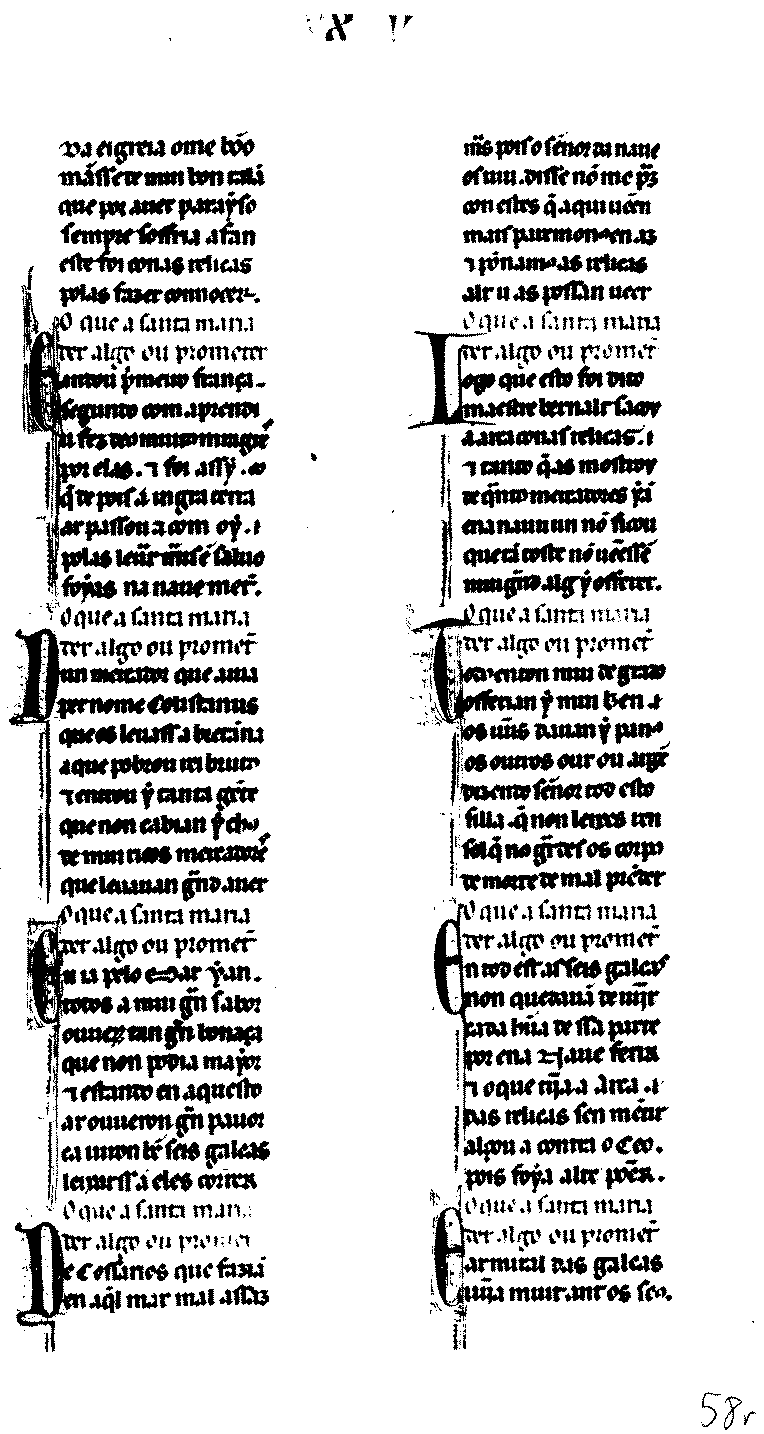 X V
va eigreia ome bõo
mãsse de mui bon talã
que por auer parayso
sempre soffria afan
este foi con as relicas
polas fazer connocer.
O que a santa maria
der algo ou prometer
Entrou p̃meiro frança.
segundo com aprendi
u fez deo muitomiragr̃e
por elas. ⁊ foi assy.
q̃ depois a ingraterra
ar passou a com oý.
polas leuar
foyas na naue met̃.
O que a santa maria
der algo ou promet̃
Dun mercador que auia
per nome Coustantus
que os leuass a bretãna
a que pobrou rei brutus
⁊ entrou ý tanta gẽte
que non cabian ý chus
de mui ricos mercadores
que leuauan gñd auer
O que a santa maria
der algo ou promet̃
En ia pelo mar ýan.
todos a mui gñ sabor
ouuer tan gñ bonaça
que non podia mayor
⁊ estando en aquesto
ar ouueron gñ pauor
ca uiron bẽ seis galeas
leixarss a eles correr
O que a santa maria
der algo ou promet̃
De Cossarios que faziã
en aq̃l mar mal assaz
mãis pois o señor da naue
os uiu. disse nõ me p̃z
con estes q̃ aqui uẽen
mais paremonos en az
⁊ põnamos as relicas
alt u as possan ueer
O que a santa maria
der algo ou promet̃
Logo que esto foi dito
maestre bernalt sacou
a arca conas relicas.
⁊ tanto q̃ as mostrou
de q̃ntos mercadores ýã
ena naue un nõ ficou
que tã toste nõ ueesse
mui gñd alg ý offerer.
O que a santa maria
der algo ou promet̃
Todos enton mui de grado
offerian ý mui ben
os ũus dauan ý panos
os outros our ou argẽ
dizendo señor tod esto
filla. q̃ non leixes ren
sol q̃ nos gr̃des os corpos
de morte de mal préder
O que a santa maria
der algo ou promet̃
En tod est as seis galeas
non quedauã de uĩjr
cada hũa de ssa parte
por ena naue ferir
⁊ o que tĩja a arca
das relicas sen mẽtir
alçou a contra o Ceo.
pois foýa alte põer.
O que a santa maria
der algo ou promet̃
E armiral das galeas
uĩja muit ant os seo.
58r